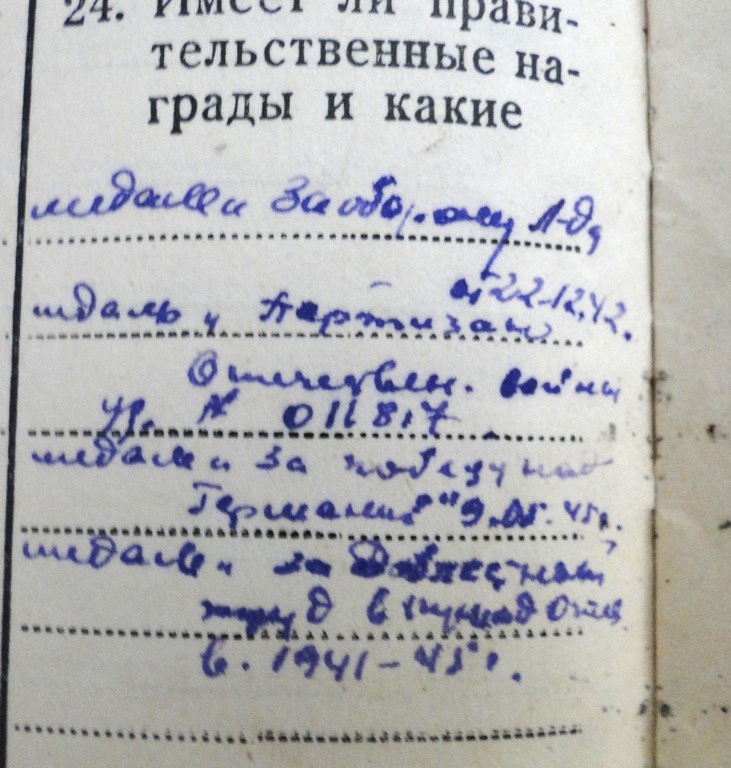 24. Имеет ли прави-
тельственные на-
грады и какие
медаль „За оборону Л-да
от 22-12.42.
медаль „Партизан
Отечествен. войны
уд. № 011817
медаль „за победу над
Германией" 9.05.45г.
медаль „за доблестный
труд в период Отеч
в. 1941-45г.